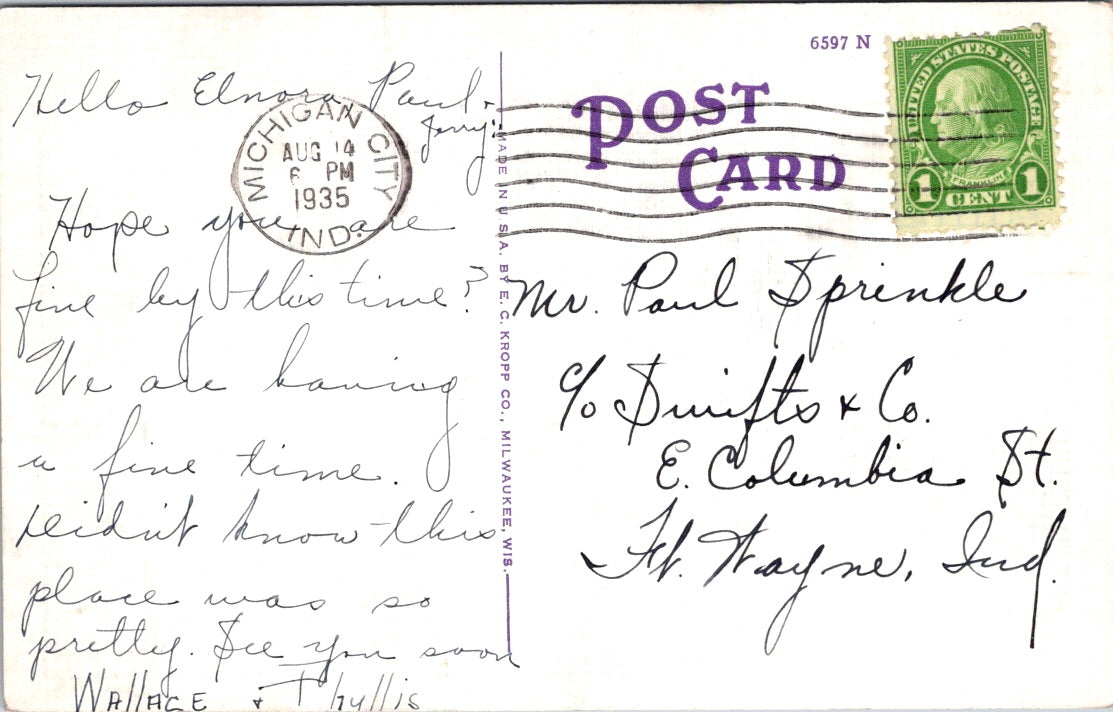 Hello Elnora Paul +
Jerry:
Hope you are
fine by this time?
We are having
a fine time.
didn't know this
place was so
pretty. See you soon
WAllACE + Phyllis
MICHIGAN CITY
AUG 14
6 PM
1935
IND.
MADE IN U.S.A. BY E. C. KROPP CO., MILWAUKEE, WIS.
6597 N
POST
CARD
UNITED STATES POSTAGE
FRANKLIN
1 CENT 1
Mr. Paul Sprinkle
c/o Swifts & Co.
E. Columbia St.
Ft. Wayne, Ind.